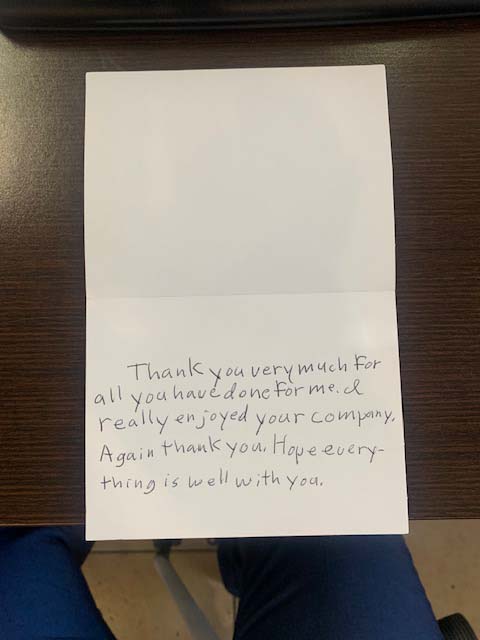 Thank you very much for
all you have done for me. I
really enjoyed your company.
Again thank you. Hope every-
thing is well with you.